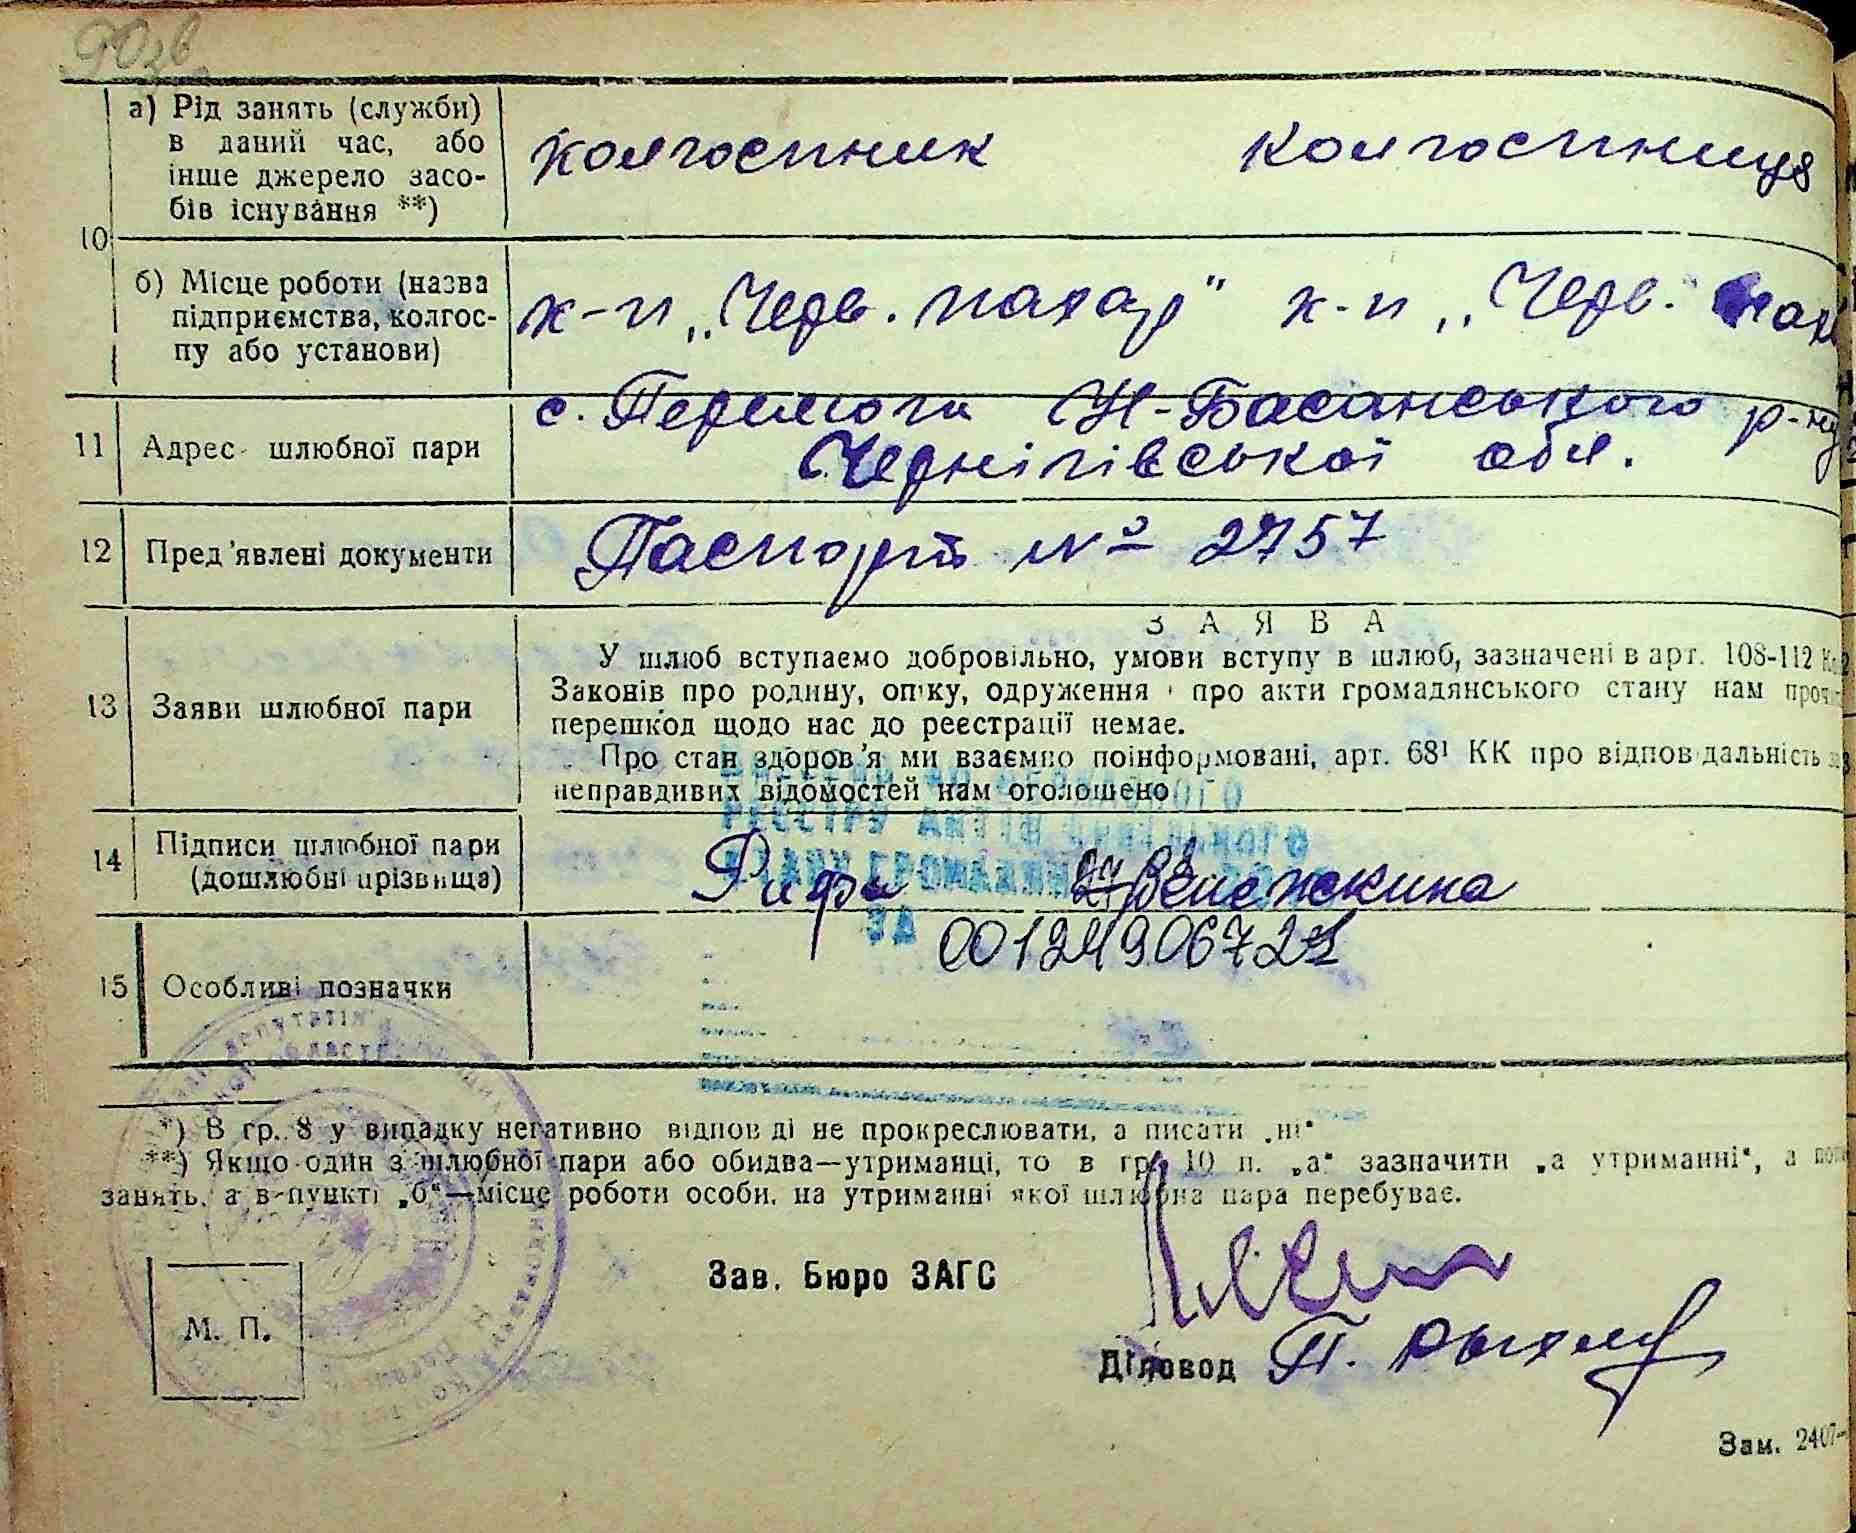 90зв
а) Рід занять (служби) в даний час, або інше джерело засобів існування **)
колгоспник колгоспниця
10
б) Місце роботи (назва підприємства, колгоспу або установи)
к-п „Черв. пахар" к-п „Черв. пах
с. Перемога Н-Басанського р-ну
11 Адрес шлюбної пари
Чернігівської обл.
12 Пред'явлені документи Паспорт № 2757
ЗАЯВА
У шлюб вступаємо добровільно, умови вступу в шлюб, зазначені в арт. 108-112
13 Заяви шлюбної пари
Законів про родину, опіку, одруження і про акти громадянського стану нам проч
перешкод щодо нас до реєстрації немає.
Про стан здоров'я ми взаємно поінформовані, арт. 68¹ КК про відповідальність за
неправдивих відомостей нам оголошено
РЕЄСТРУ АКТІВ
14 Підписи шлюбної пари (дошлюбні прізвища)
ЗА
00124906727
15 Особливі позначки
*) В гр. 8 у випадку негативно відповіді не прокреслювати, а писати „ні"
**) Якщо один з шлюбної пари або обидва—утриманці, то в гр. 10 п. „а" зазначити „а утриманні", а
занять, а в пункті „б"—місце роботи особи, на утриманні якої шлюбна пара перебуває.
Зав. Бюро ЗАГС
М. П.
Діловод П.
Зам. 2407-